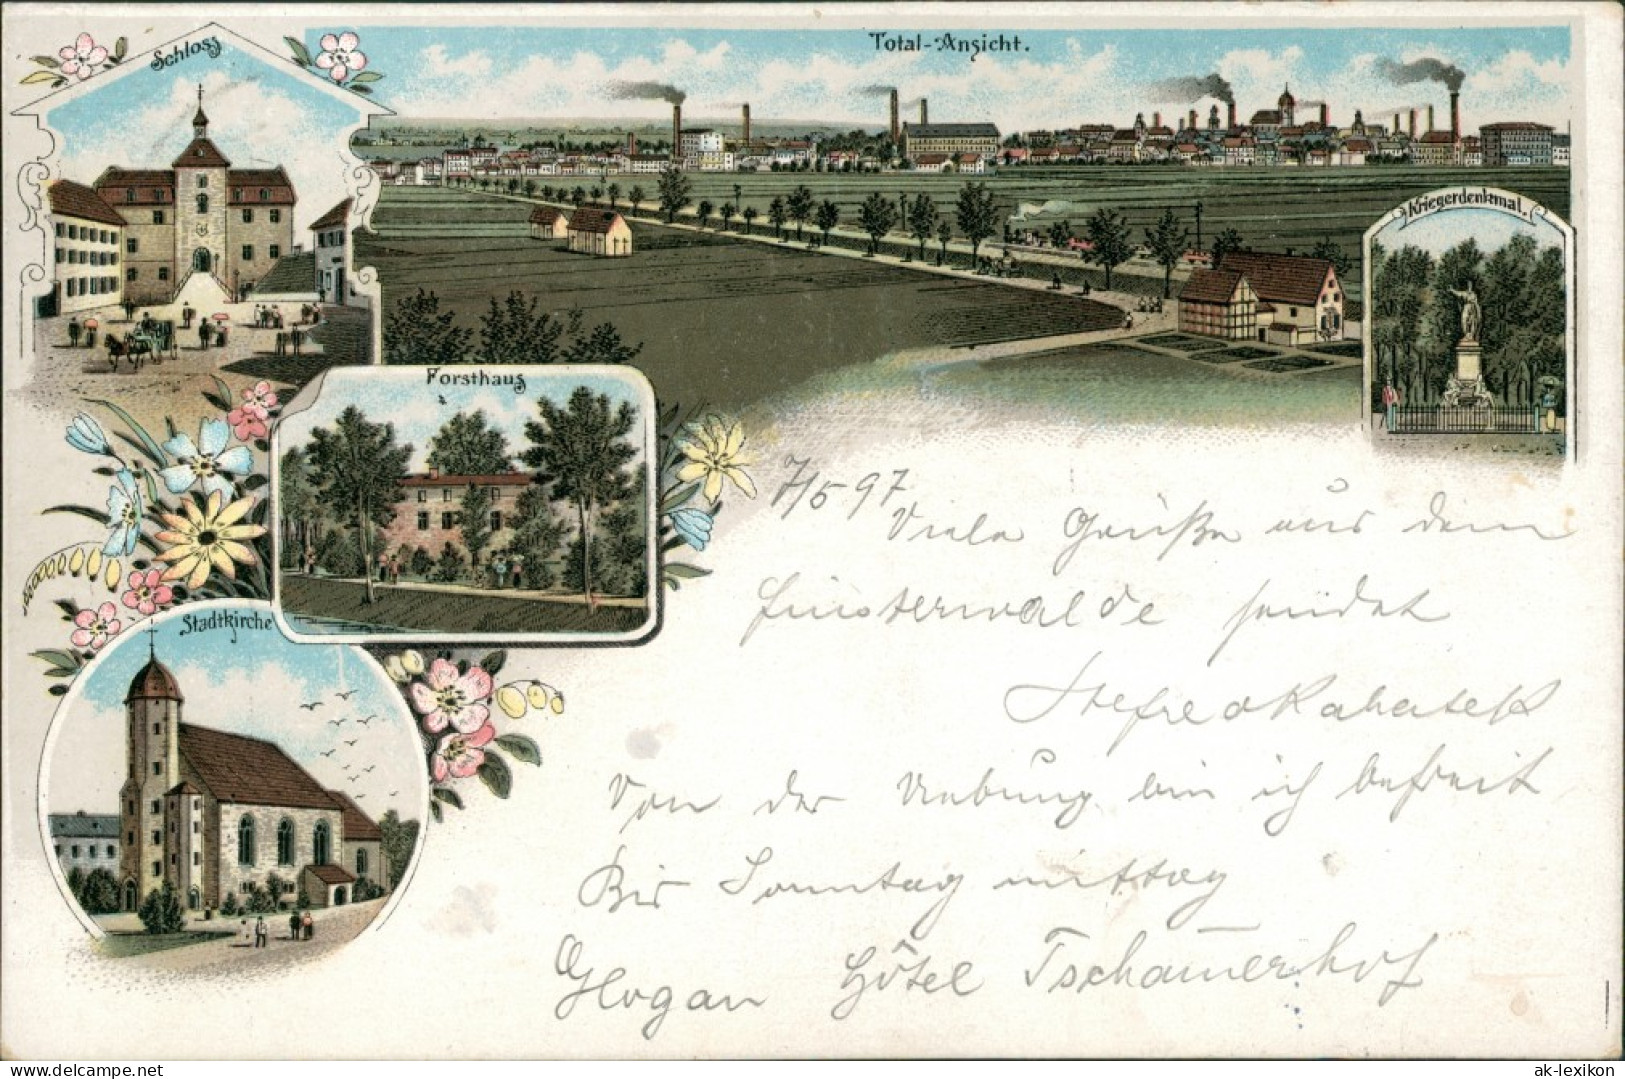 Schloss
Total-Ansicht.
Kriegerdenkmal.
Forsthaus
Stadtkirche
7/5 97
Viele Grüße aus dem
Finsterwalde sendet
Von der Uebung bin ich befreit
Bis Sonntag mittag
Glogau Hôtel Tschamerhof
© www.delcampe.net
ak-lexikon